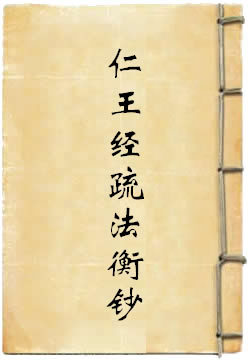 仁王经疏法衡钞